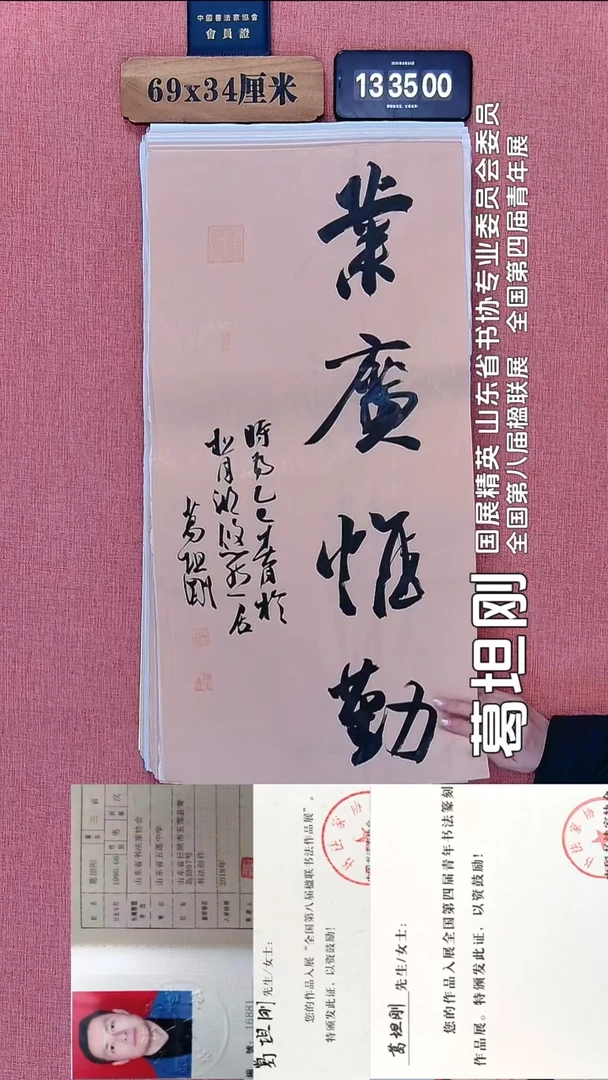 中國書法家協會
會員證
69x34厘米
13 35 00
業廣惟勤
時為乙巳春於
葛坦剛
葛坦刚
国展精英 山东省书协专业委员会委员
全国第八届楹联展 全国第四届青年展
葛坦刚
1980.06 男 汉
山东省书法家协会
山东省五莲中学
书法创作
2018年
葛坦刚 先生/女士：
您的作品入展“全国第八届楹联书法作品展”。
特颁发此证，以资鼓励！
葛坦刚 先生/女士：
您的作品入展全国第四届青年书法篆刻
作品展。特颁发此证，以资鼓励！